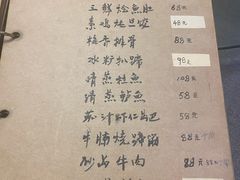 三鲜烩鱼肚 68元
素鸡烧旦饺 48元
椒香排骨 88元
水晶扒蹄 98元
清蒸桂鱼 108元
清蒸鲈鱼 58元
茄汁虾仁锅巴 58元
牛腩烧蹄筋 88元
牛肉 88元